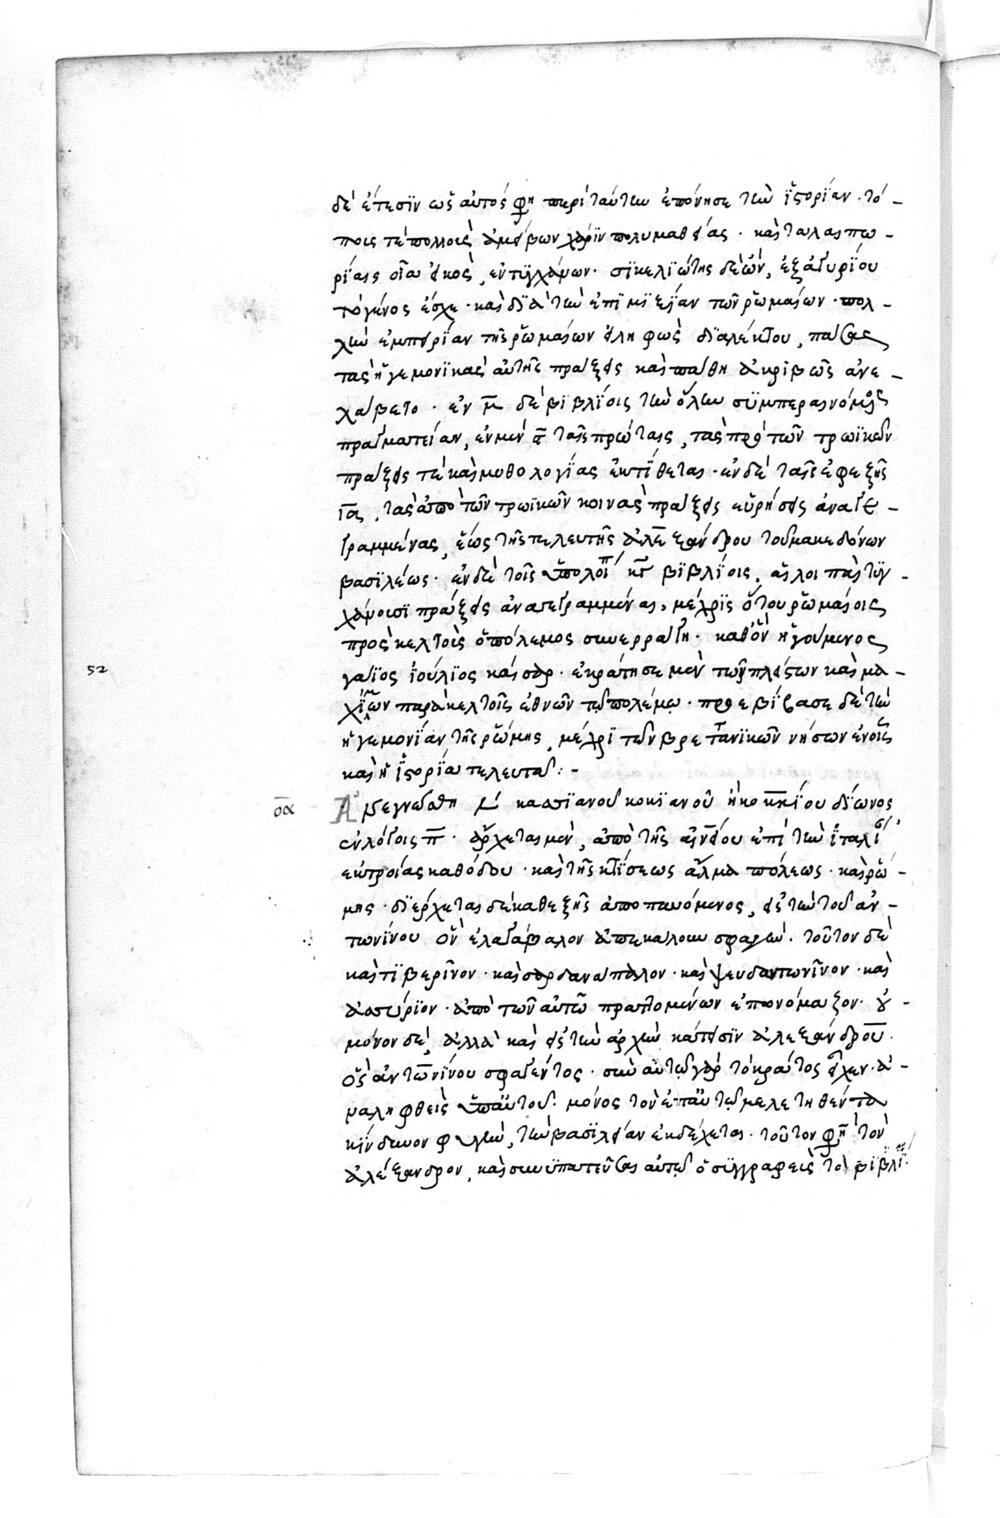 δὲ ἔτεσϊν ὡς αὐτός φη περὶ ταύτην ἐπόνησε τὴν ἱστορίαν· τό-
ποις τὲ πολλοῖς ἀμείβων χάριν πολυμαθείας· καὶ ταλαιπω-
ρίαις οἷα εἰκὸς, ἐντυγχάνων· σϊκελϊώτης δὲ ὢν, ἐξ ἀγυρίου
τὸ γένος ἔσχε· καὶ διὰ τὴν ἐπιμιξίαν τῶν ῥωμαίων· πολ-
λὴν ἐμπειρίαν τῆς ῥωμαίων εἰληφὼς διαλέκτου, πάσας
τὰς ἡγεμονικὰς αὐτῆς πράξεις καὶ πάθη ἀκριβῶς ἀνε-
λάβετο· ἐν μ̅ δὲ βιβλίοις τὴν ὅλην συμπεραινόμενος
πραγματείαν, ἐν μὲν ϛ̅ ταῖς πρώταις, τὰς πρὸ τῶν τρωϊκῶν
πράξεις τὲ καὶ μυθολογίας ἐκτίθεται· ἐν δὲ ταῖς ἐφεξῆς
ια̅, τὰς ἀπὸ τῶν τρωϊκῶν κοινὰς πράξεις εὑρήσεις ἀναγε-
γραμμένας, ἕως τῆς τελευτῆς ἀλεξάνδρου τοῦ μακεδόνων
βασιλέως· ἐν δὲ τοῖς ὑπολοίπ κγ̅ βιβλίοις, αἱ λοιπαὶ τυγ-
χάνουσϊ πράξεις ἀναγεγραμμέναι, μέχρις ὅτου ῥωμαίοις
πρὸς κελτοὺς ὁ πόλεμος συνερράγη· καθ᾽ ὃν ἡγούμενος
γάϊος ϊούλϊος καίσαρ· ἐκράτησε μὲν τῶν πλείστων καὶ μα-
χίμων παρὰ κελτοῖς ἐθνῶν τῷ πολέμῳ· προεβίβασε δὲ τὴν
ἡγεμονίαν τῆς ῥώμης, μέχρι τῶν βρεττανικῶν νήσων ἐν οἷς
καὶ ἡ ἱστορία τελευτᾷ:-
ο̅α̅ Ἀνεγνώσθη κασσιανοῦ κοκιανοῦ ἢ κοκκηΐου δίωνος
ἐν λόγοις π̅· ἄρχεται μὲν, ἀπὸ τῆς αἰνείου ἐπὶ τὴν ἰταλί
ἐκ τροίας καθόδου· καὶ τῆς κτίσεως ἄλβα πόλεως· καὶ ῥώ-
μης· διέρχεται δὲ καθεξῆς ἀποπαυόμενος, εἰς τὴν τοῦ ἀν-
τωνίνου ὃν ἐλαγάβαλον ἀπεκάλουν σφαγήν· τοῦτον δὲ
καὶ τϊβερῖνον· καὶ σαρδανάπαλον· καὶ ψευδαντωνῖνον· καὶ
ἀσσύριον· ἀπὸ τῶν αὐτῶ πραττομένων ἐπωνόμαζον· οὐ
μόνον δὲ, ἀλλὰ καὶ εἰς τὴν ἀρχὴν κάτεισϊν ἀλεξάνδρου·
ὃς ἀντωνίνου σφαγέντος· σὺν αὐτῷ γὰρ τὸ κράτος εἶχεν· ἀ-
ναληφθεὶς ὑπ᾽ αὐτοῦ· μόνος τὸν ἐπ᾽ αὐτῷ μελετηθέντα
κίνδυνον φυγὼν, τὴν βασιλείαν ἐκδέχεται· τοῦτον φη τὸν
ἀλέξανδρον, καὶ συνυπατεῦσαι αὐτῷ ὁ συγγραφεὺς τοῦ βιβλί
52